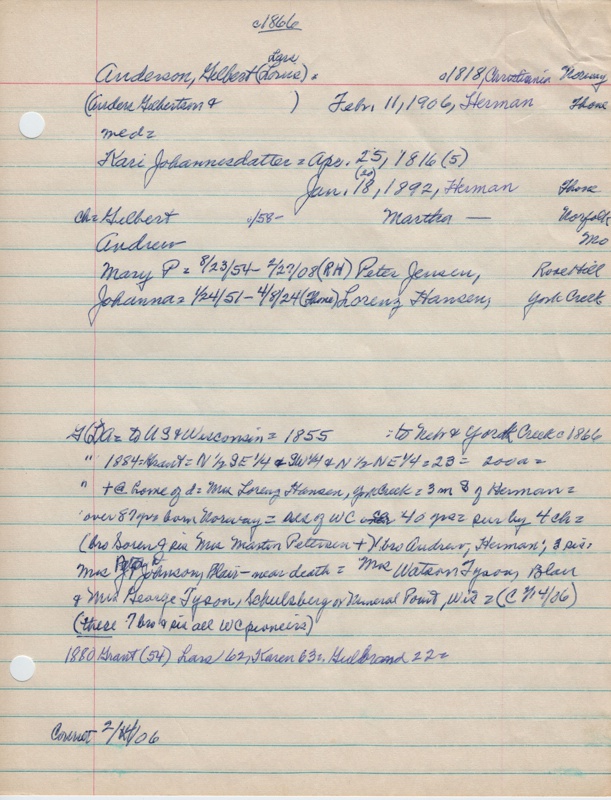 c1866
Lars
Anderson, Gilbert (Lorus) = c1818, Christiania Norway
(Anders Gilbertson & ) Febr. 11, 1906, Herman Thone
med=
Kari Johannesdatter = Apr. 25, 1816 (5)
(20)
Jan. 18, 1892, Herman Thone
ch= Gilbert c/58- Martha — Norfolk
Andrew Mo
Mary P = 8/23/54 - 2/27/08 (RH) Peter Jensen, Rose Hill
Johanna = 1/24/51 - 4/8/24 (Thone) Lorenz Hansen, York Creek
G(L)A = to US & Wisconsin = 1855 : to Nebr & York Creek c1866
" 1884 = Grant = N 1/2 SE 1/4 & SW 1/4 & N 1/2 NE 1/4 = 23 = 200a =
" + @ home of d = Mrs Lorenz Hansen, York Creek = 3 m S of Herman =
over 87 yrs born Norway = res of WC 40 yrs = sur by 4 ch =
(bro Soren & sis Mrs Martin Petersen +) bro Andrew, Herman; 3 sis:
Mrs Johnson, Blair - near death = Mrs Watson Tyson, Blair
& Mrs George Tyson, Schulsberg or Mineral Point, Wis = (C 2/14/06)
(these 7 bro & sis all WC pioneers)
1880 Grant (54) Lars 62, Karen 63 =, Gulbrand 22 =
2/14/06